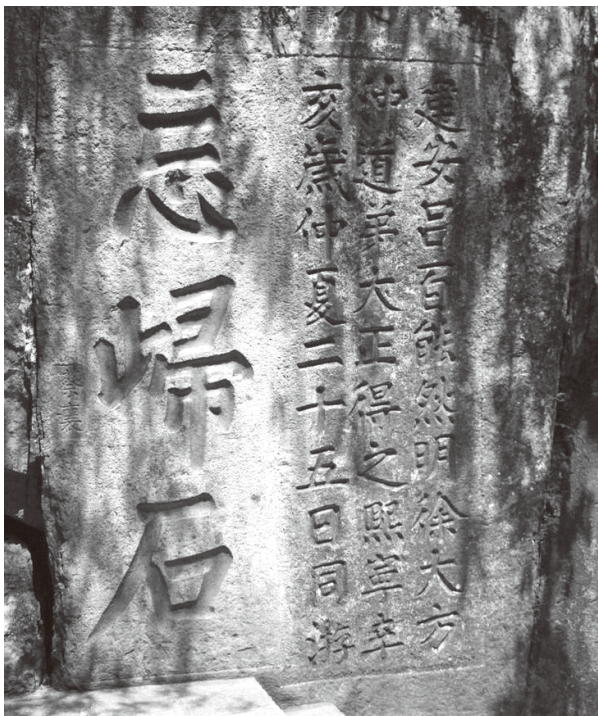 建安吕百能然明徐大方
仲道弟大正得之熙寧辛
亥歲仲夏二十五日同游
忘歸石
蔡襄